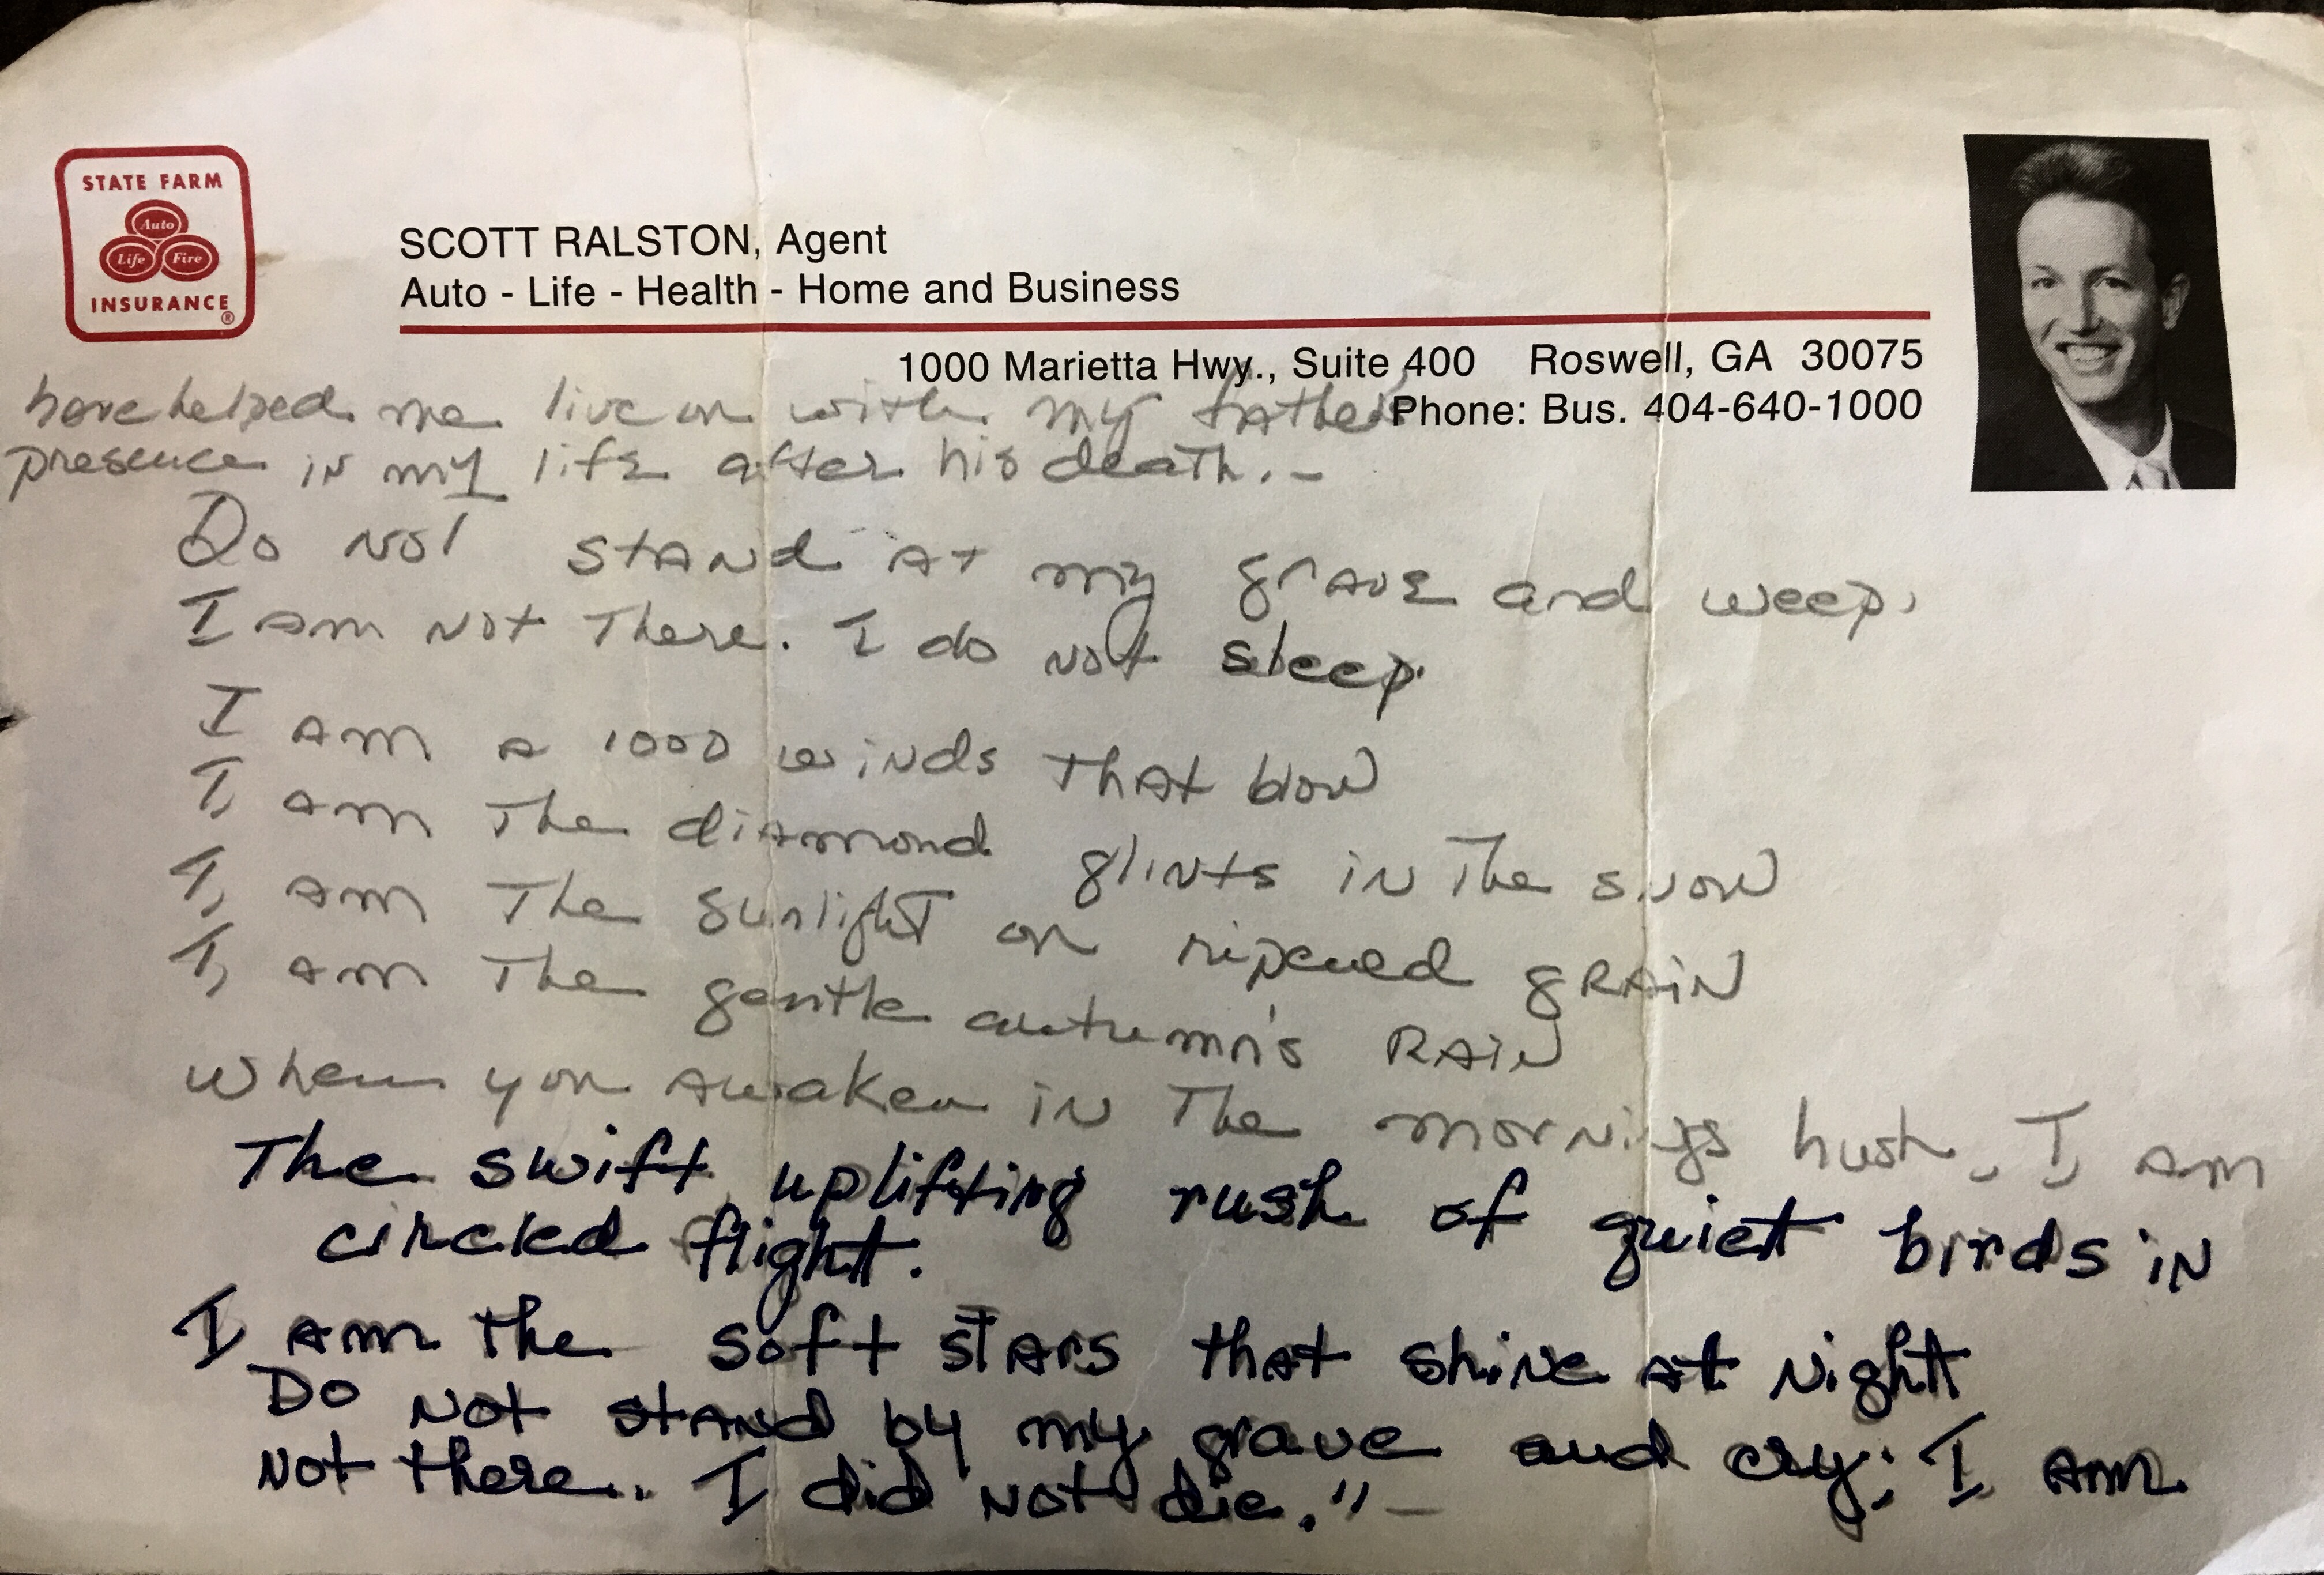 STATE FARM
Auto
Life Fire
INSURANCE
®
SCOTT RALSTON, Agent
Auto - Life - Health - Home and Business
1000 Marietta Hwy., Suite 400 Roswell, GA 30075
Phone: Bus. 404-640-1000
have helped me live on with my father's
presence in my life after his death. -
Do not stand at my grave and weep.
I am not there. I do not sleep.
I am a 1000 winds that blow
I, am the diamond glints in the snow
I, am the sunlight on ripened grain
I, am the gentle autumn's rain
When you awaken in the mornings hush, I, am
The swift uplifting rush of quiet birds in
circled flight.
I am the soft stars that shine at night
Do not stand by my grave and cry; I am
not there.. I did not die." -